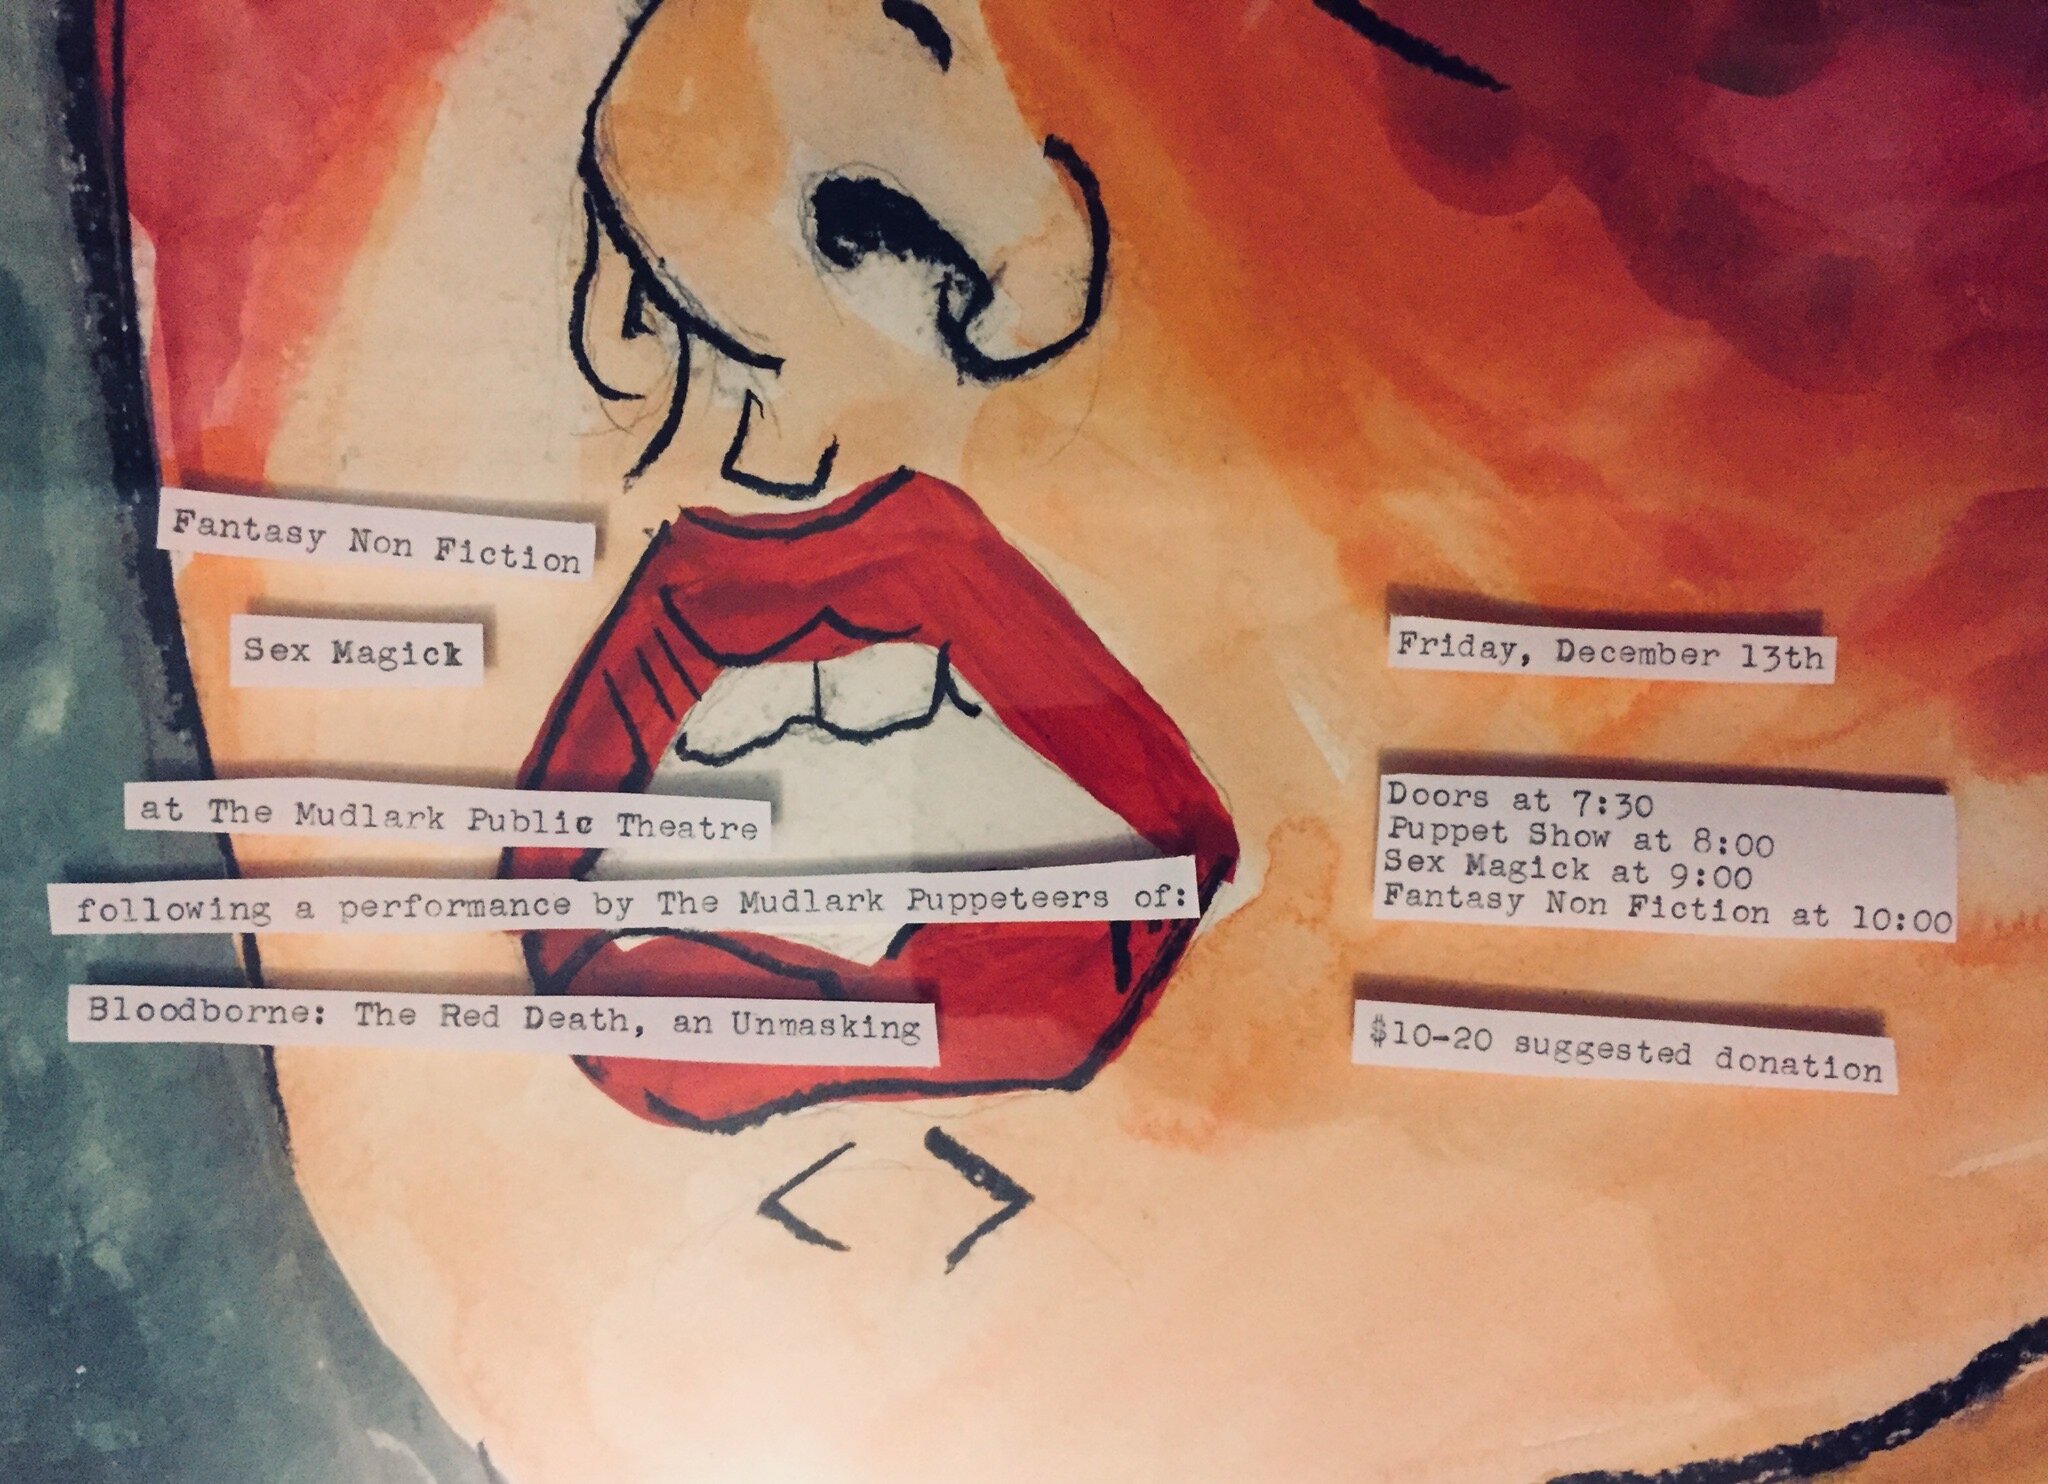 Fantasy Non Fiction
Sex Magick
at The Mudlark Public Theatre
following a performance by The Mudlark Puppeteers of:
Bloodborne: The Red Death, an Unmasking
Friday, December 13th
Doors at 7:30
Puppet Show at 8:00
Sex Magick at 9:00
Fantasy Non Fiction at 10:00
$10-20 suggested donation